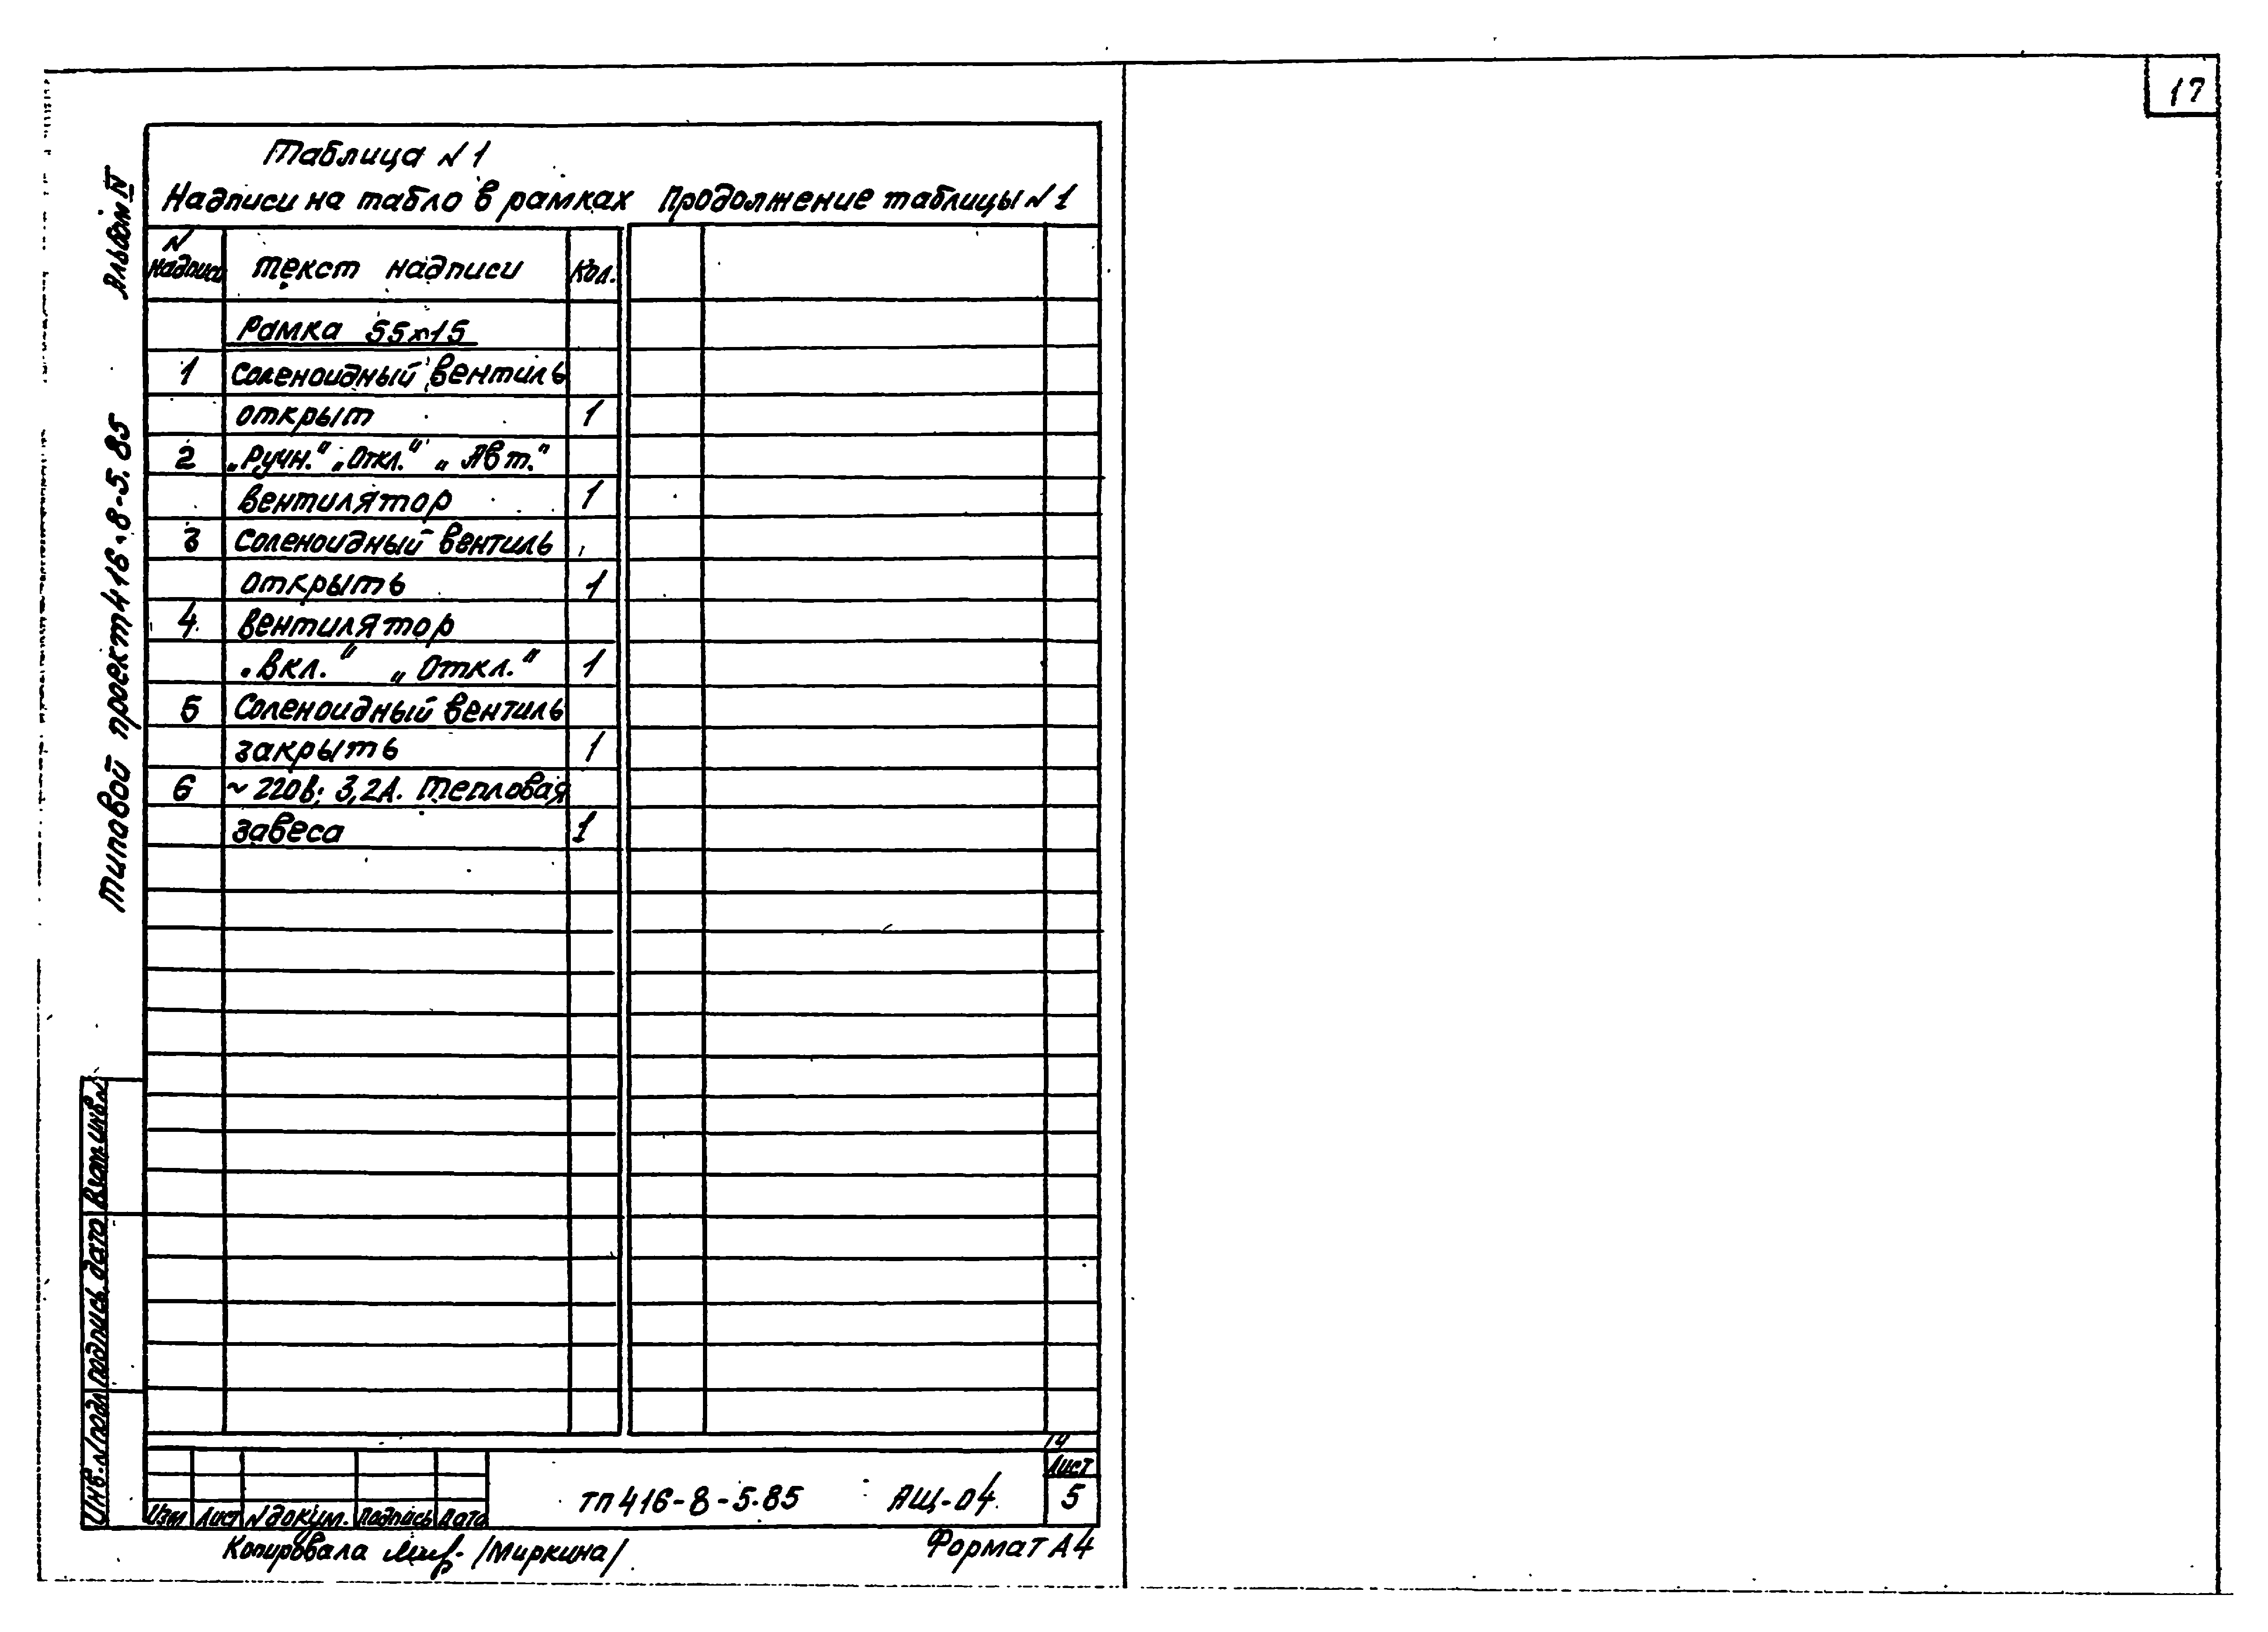 17
Таблица N 1
Надписи на табло в рамках Продолжение таблицы N 1
N надписи текст надписи Кол.
Рамка 55×15
1 Соленоидный вентиль
открыт 1
2 „Ручн.“ „Откл.“ „Авт.“
вентилятор 1
3 Соленоидный вентиль
открыть 1
4 Вентилятор
„Вкл.“ „Откл.“ 1
5 Соленоидный вентиль
закрыть 1
6 ~220В; 3,2А. Тепловая
завеса 1
Альбом IV
Типовой проект 416-8-5.85
Взам.инв.N
Подпись дата
Инв.Nподл
14
Изм Лист N докум. Подпись Дата
ТП 416-8-5.85 АЩ-04
Лист
5
Копировала /Миркина/
Формат А4